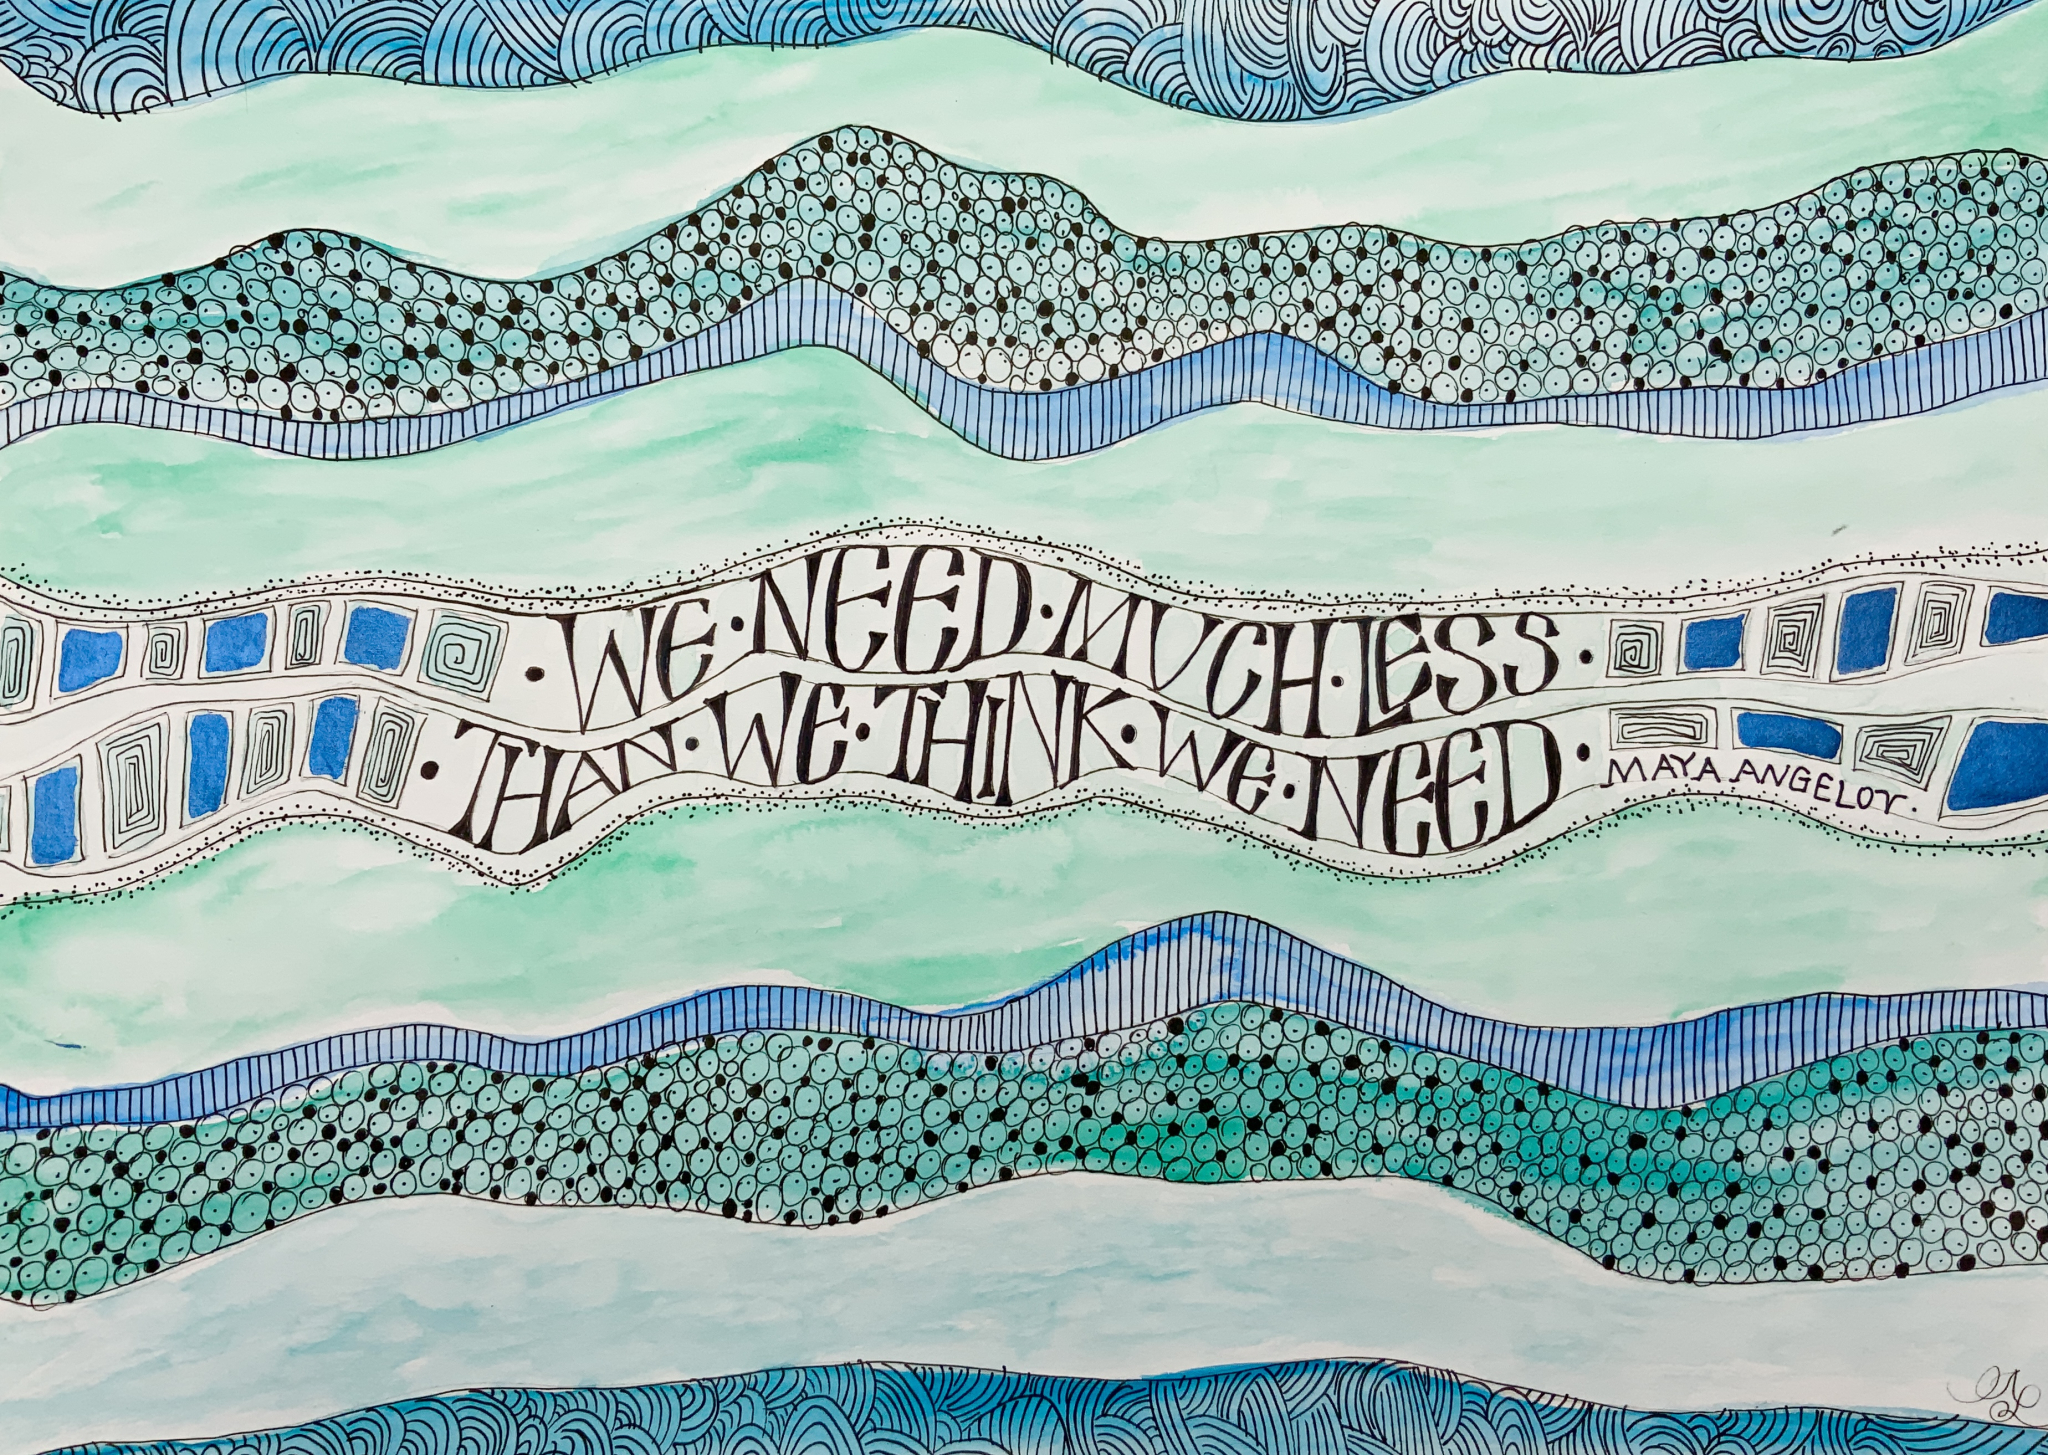 WE·NEED·MUCH·LESS
THAN·WE·THINK·WE·NEED
MAYA ANGELOU.